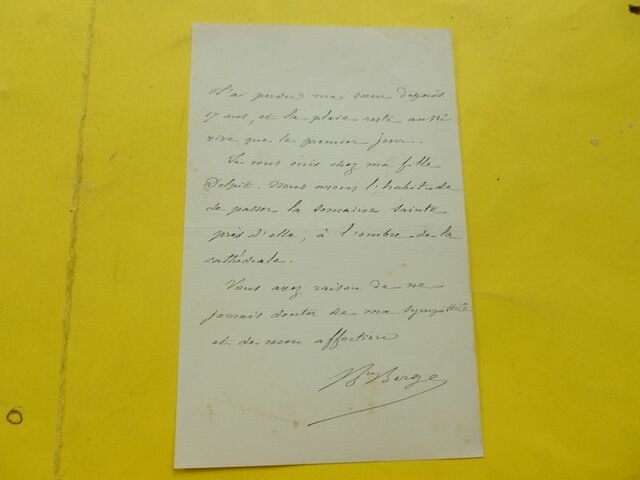 J'ai perdu ma soeur depuis
17 ans, et la plaie reste aussi
vive que le premier jour.
Je vous écris chez ma fille
Delpit. Nous avons l'habitude
de passer la semaine sainte
près d'elle, à l'ombre de la
cathédrale.
Vous avez raison de ne
jamais douter de ma sympathie
et de mon affection
Berge